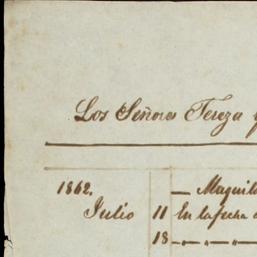 Los Señores Tereza y
1862. — Maquil
Julio 11 En la fecha
18 — " — " —